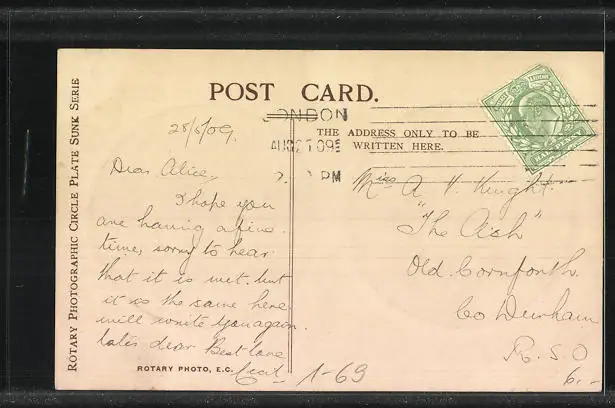 ROTARY PHOTOGRAPHIC CIRCLE PLATE SUNK SERIE
POST CARD.
LONDON
AUG 09
PM
THE ADDRESS ONLY TO BE
WRITTEN HERE.
28/8/09.
Dear Alice,
I hope you
are having a fine
time, sorry to hear
that it is wet. but
it is the same here.
will write you again
later dear Best love
Cecil
Miss A V. Knight.
"The
Old Cornforth.
Co Durham
R. S. O
ROTARY PHOTO, E.C.
1-69
6.-